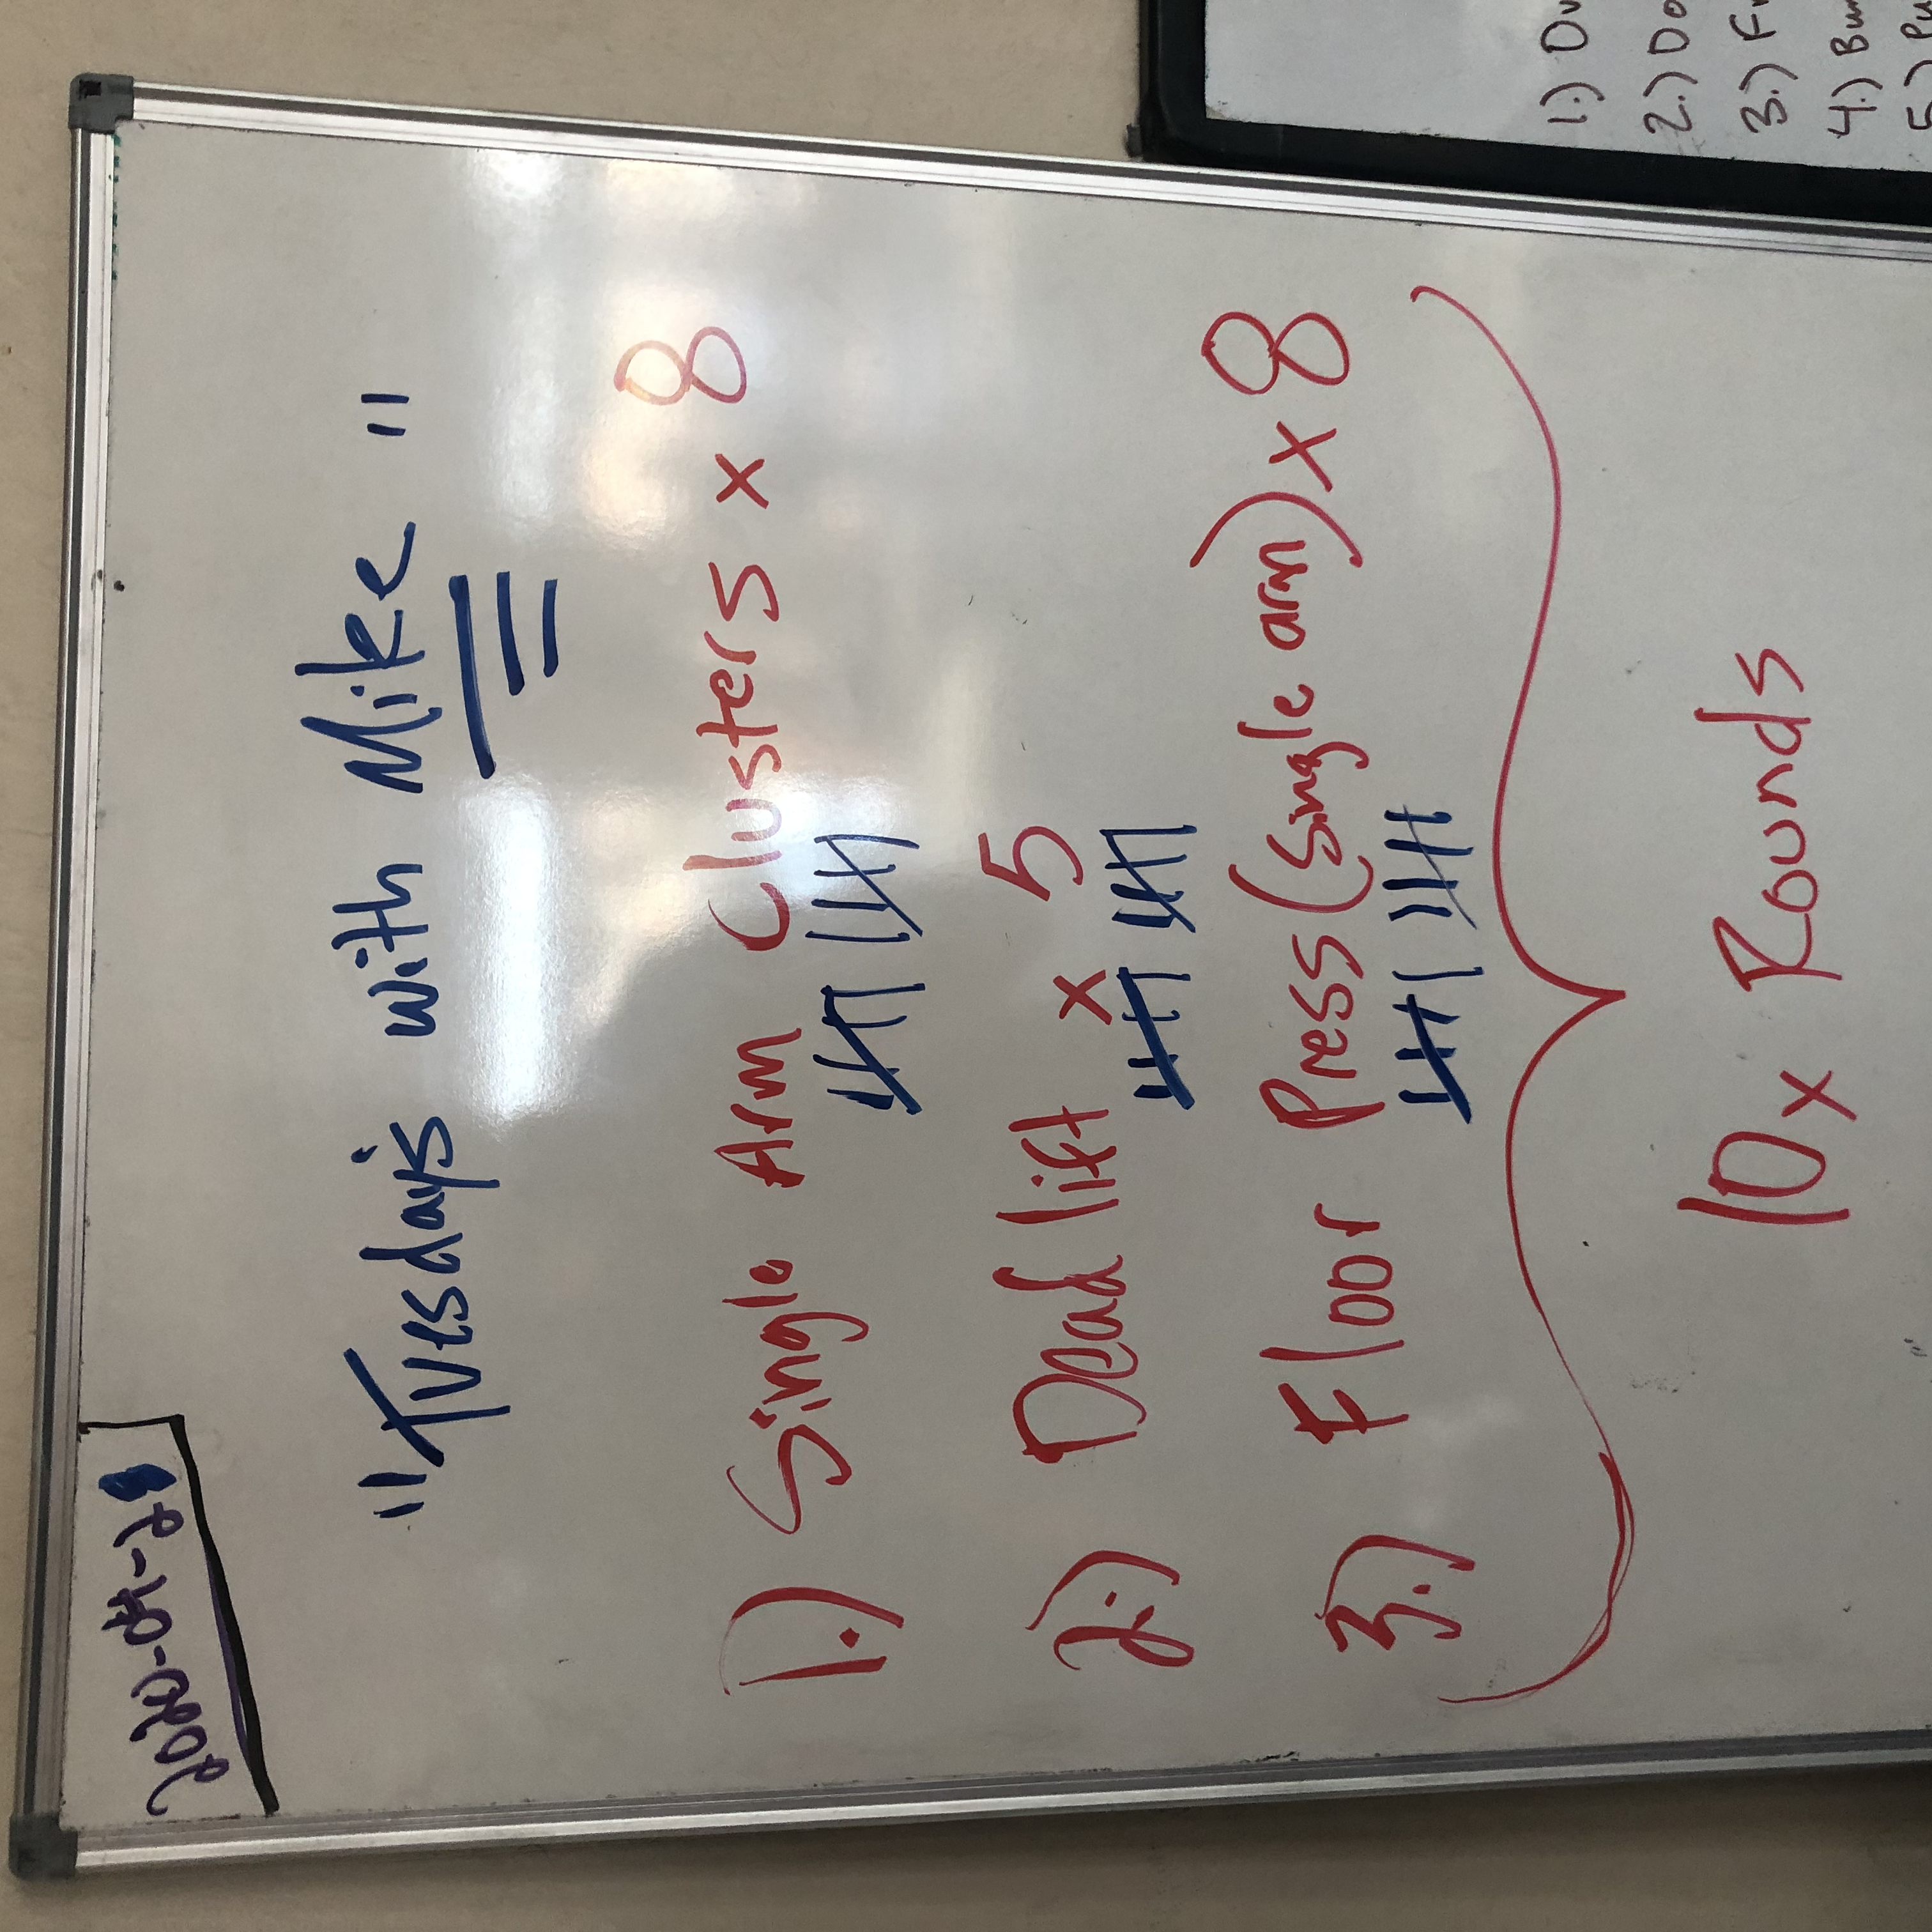 2020-04-28
"Tuesday's with Mike"
1.) Single Arm Clusters x 8
2.) Dead lift x 5
3.) Floor Press (Single arm) x 8
10x Rounds
1.)
2.)
3.)
4.)
5.)